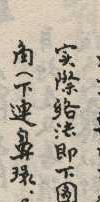 实際络法即下圖
角（下連鼻琭